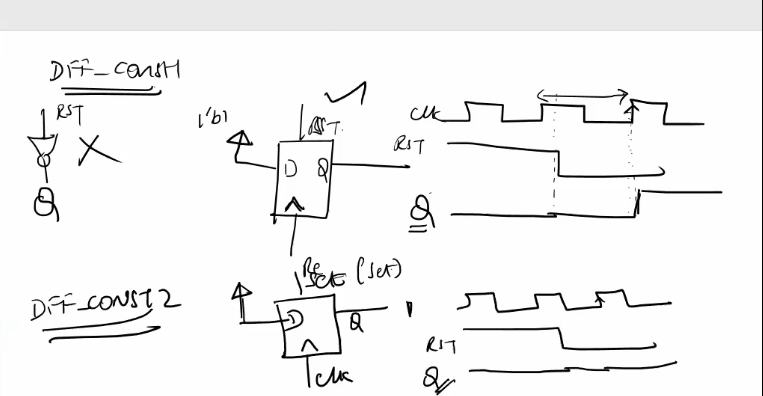 DFF_CONST1
RST
Q
1'b1
RST
D Q
Clk
RST
Q
DFF_CONST2
Reset (set)
D
Q
Clk
RST
Q